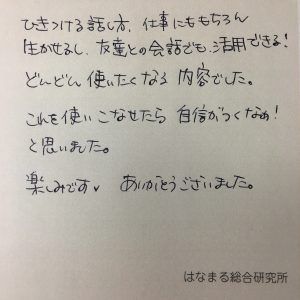 ひきつける話し方、仕事にももちろん
生かせるし、友達との会話でも、活用できる!
どんどん使いたくなる内容でした。
これを使いこなせたら自信がつくなぁ!
と思いました。
楽しみです♥ ありがとうございました。
はなまる総合研究所